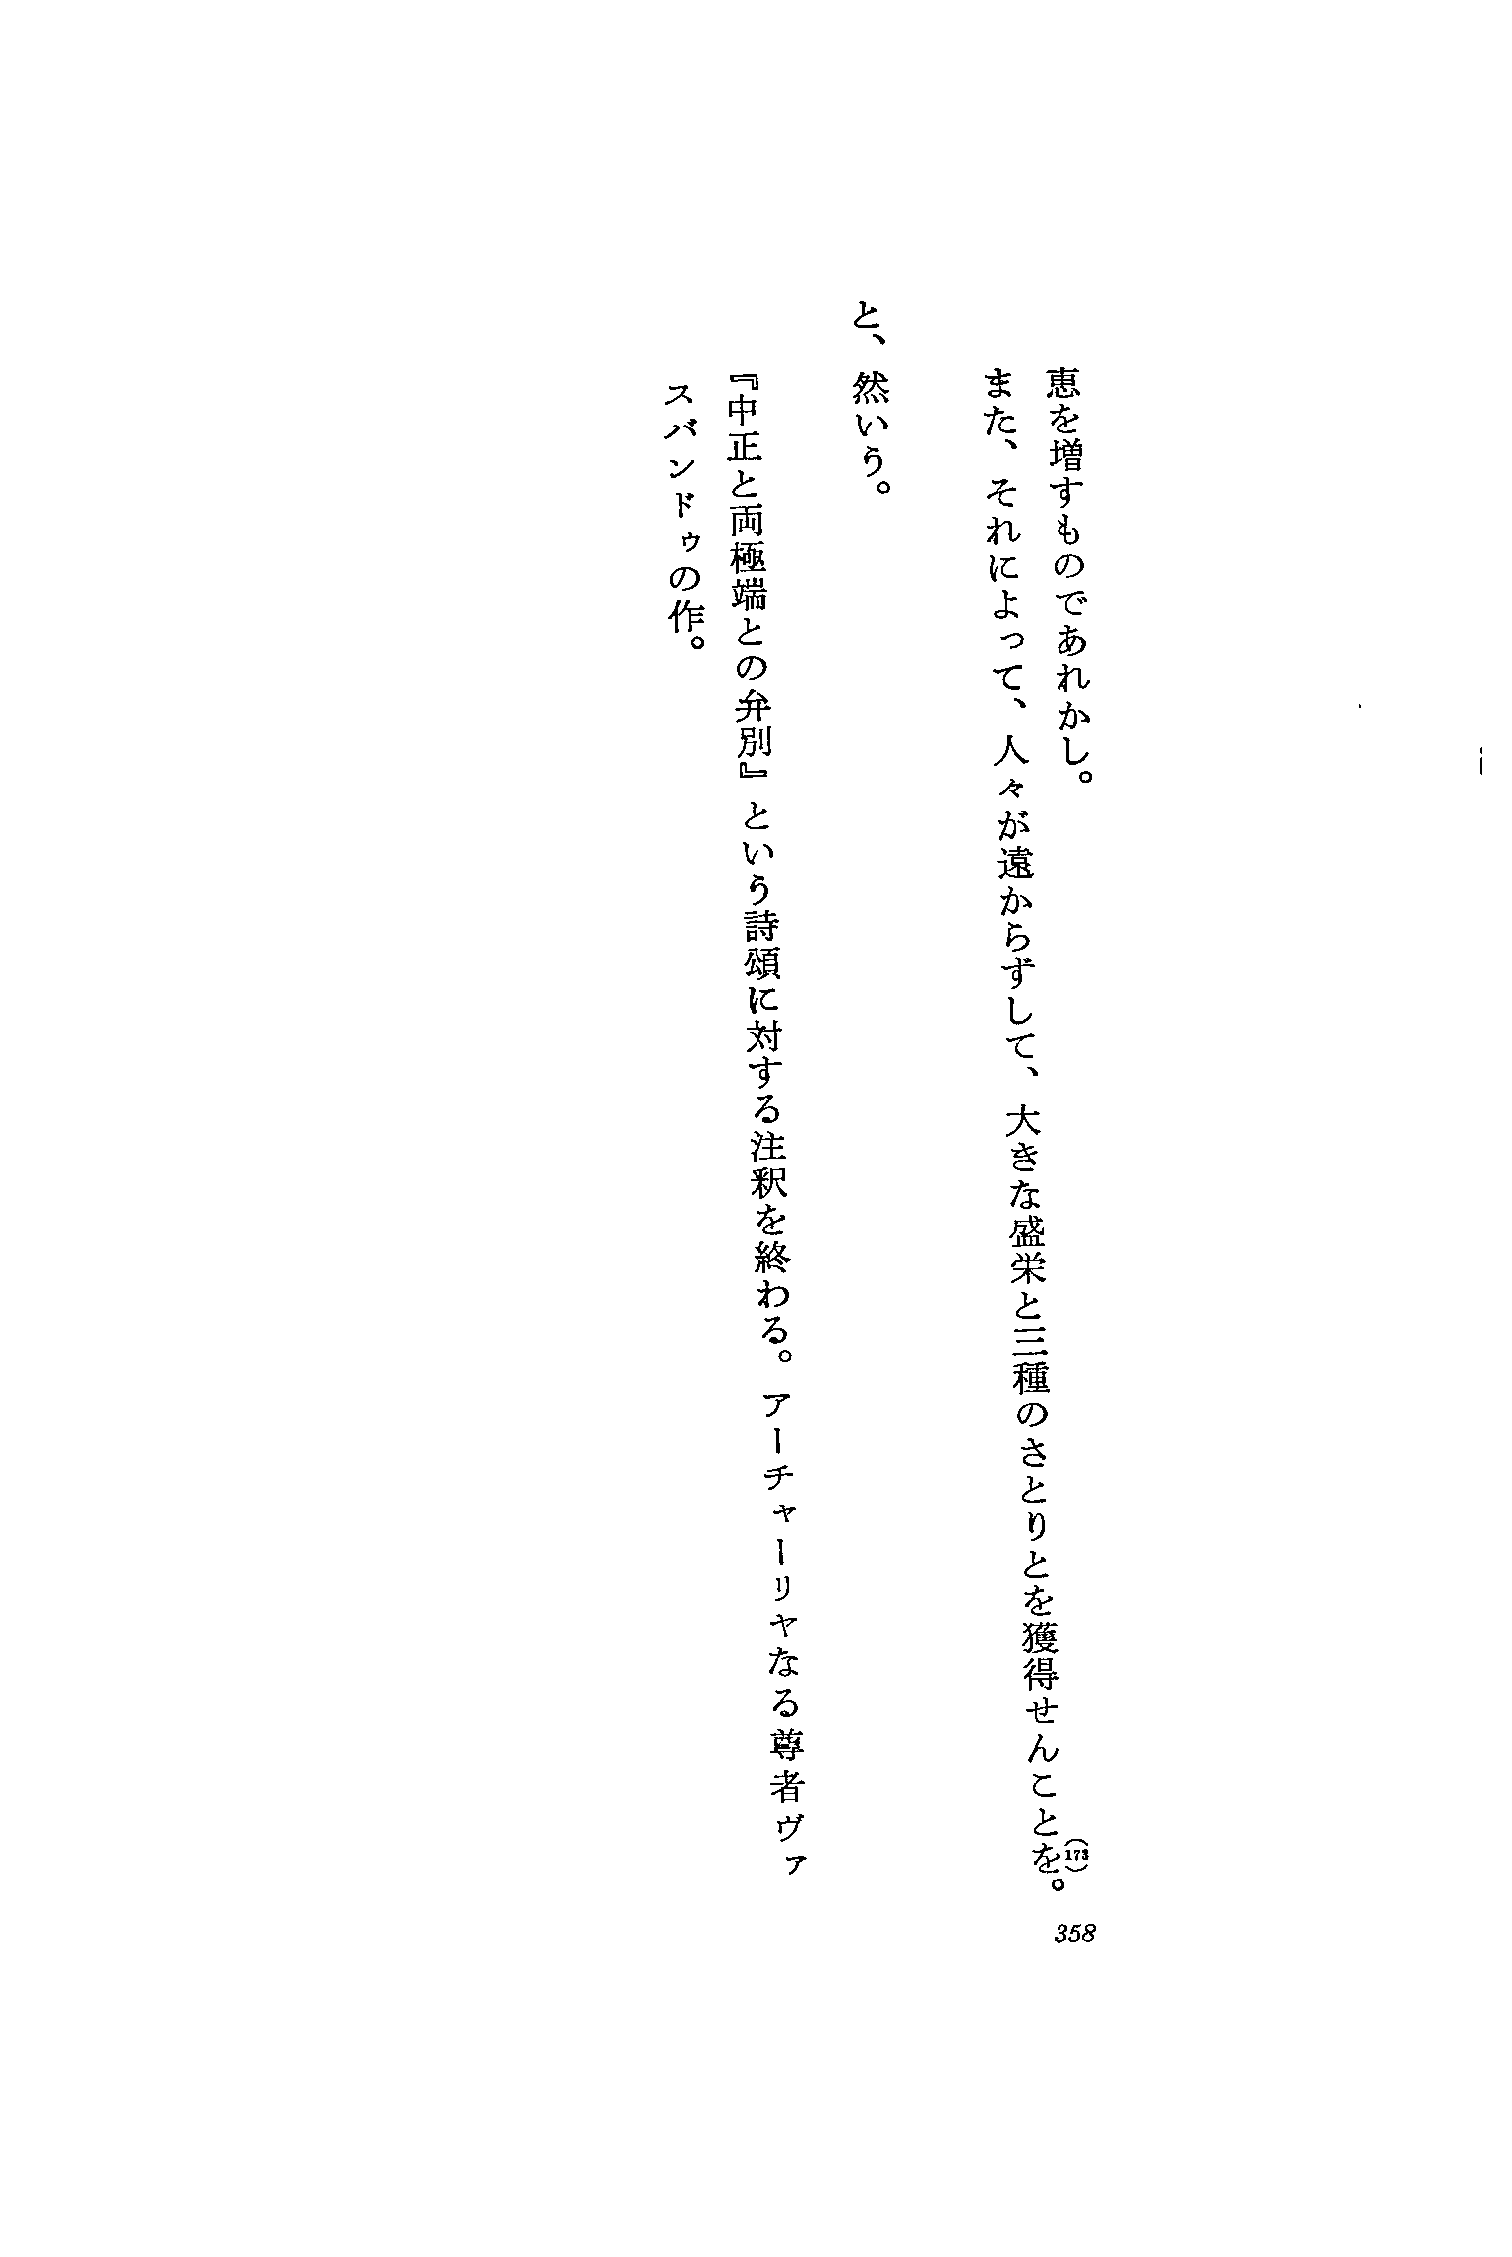 恵を増すものであれかし。
また、それによって、人々が遠からずして、大きな盛栄と三種のさとりとを獲得せんことを。(173)
と、然いう。
『中正と両極端との弁別』という詩頌に対する注釈を終わる。アーチャーリヤなる尊者ヴァ
スバンドゥの作。
358